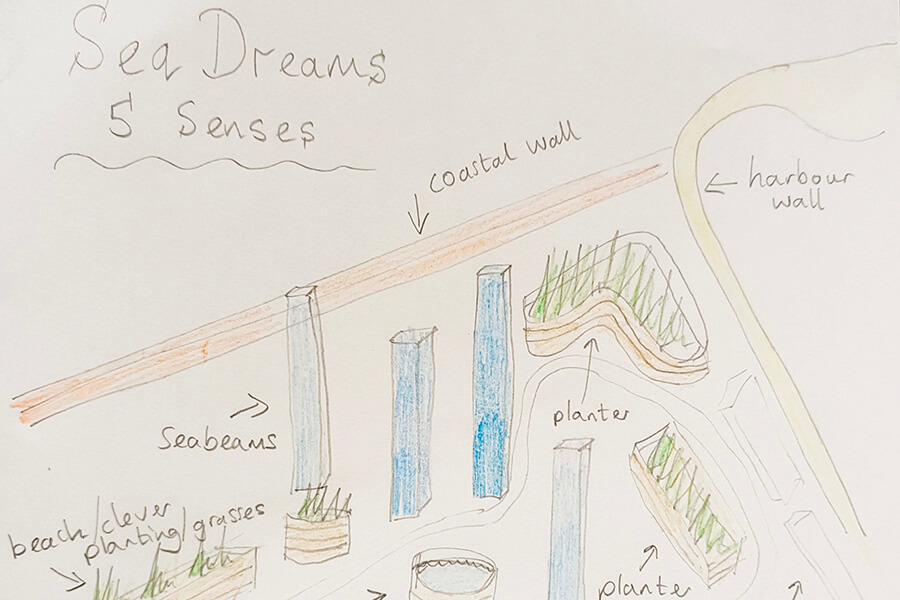 Sea Dreams
5 Senses
coastal wall
harbour
wall
planter
Seabeams
beach/clever
planting/grasses
planter